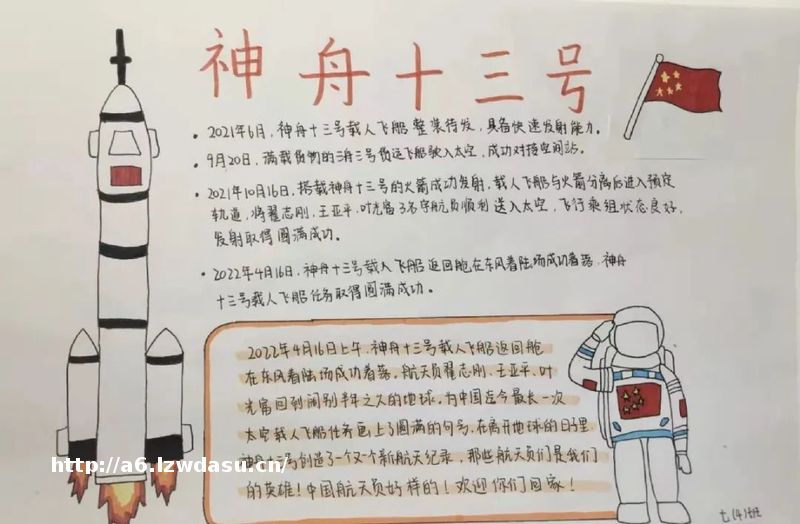 神舟十三号
• 2021年6月,神舟十三号载人飞船整装待发,具备快速发射能力。
• 9月20日,满载货物的三舟三号货运飞船驶入太空,成功对接空间站。
• 2021年10月16日,搭载神舟十三号的火箭成功发射,载人飞船与火箭分离后进入预定
轨道,将翟志刚,王亚平,叶光富3名宇航员顺利送入太空,飞行乘组状态良好,
发射取得圆满成功。
• 2022年4月16日,神舟十三号载人飞船返回舱在东风着陆场成功着落,神舟
十三号载人飞船任务取得圆满成功。
2022年4月16日上午,神舟十三号载人飞船返回舱
在东风着陆场成功着落,航天员翟志刚、王亚平、叶
光富回到阔别半年之久的地球,为中国迄今最长一次
太空载人飞船任务画上了圆满的句号,在离开地球的日子里
神舟十三号创造了一个又一个新航天纪录,那些航天员们是我们
的英雄!中国航天员好样的!欢迎你们回家!
http://a6.lzwdasu.cn/
七(4)班